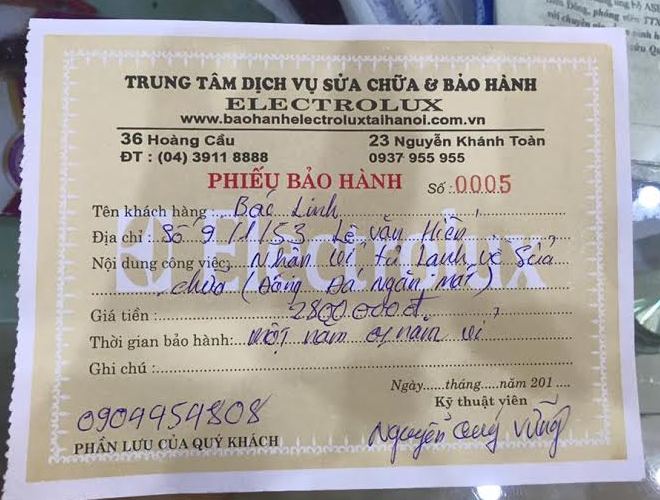 TRUNG TÂM DỊCH VỤ SỬA CHỮA & BẢO HÀNH
ELECTROLUX
www.baohanhelectroluxtaihanoi.com.vn
36 Hoàng Cầu 23 Nguyễn Khánh Toàn
ĐT : (04) 3911 8888 0937 955 955
PHIẾU BẢO HÀNH Số : 0005
Tên khách hàng Bác Linh
Địa chỉ : Số 9/1/53 Lê Văn Hiến
Nội dung công việc: Nhận vi tủ lạnh về sửa
chữa (Đóng Đá ngăn mát)
Giá tiền : 2800.000đ
Thời gian bảo hành: một năm 01 năm
Ghi chú :
Ngày.....tháng.....năm 201....
Kỹ thuật viên
0904454808
Nguyễn Quý Vững
PHẦN LƯU CỦA QUÝ KHÁCH
Electrolux